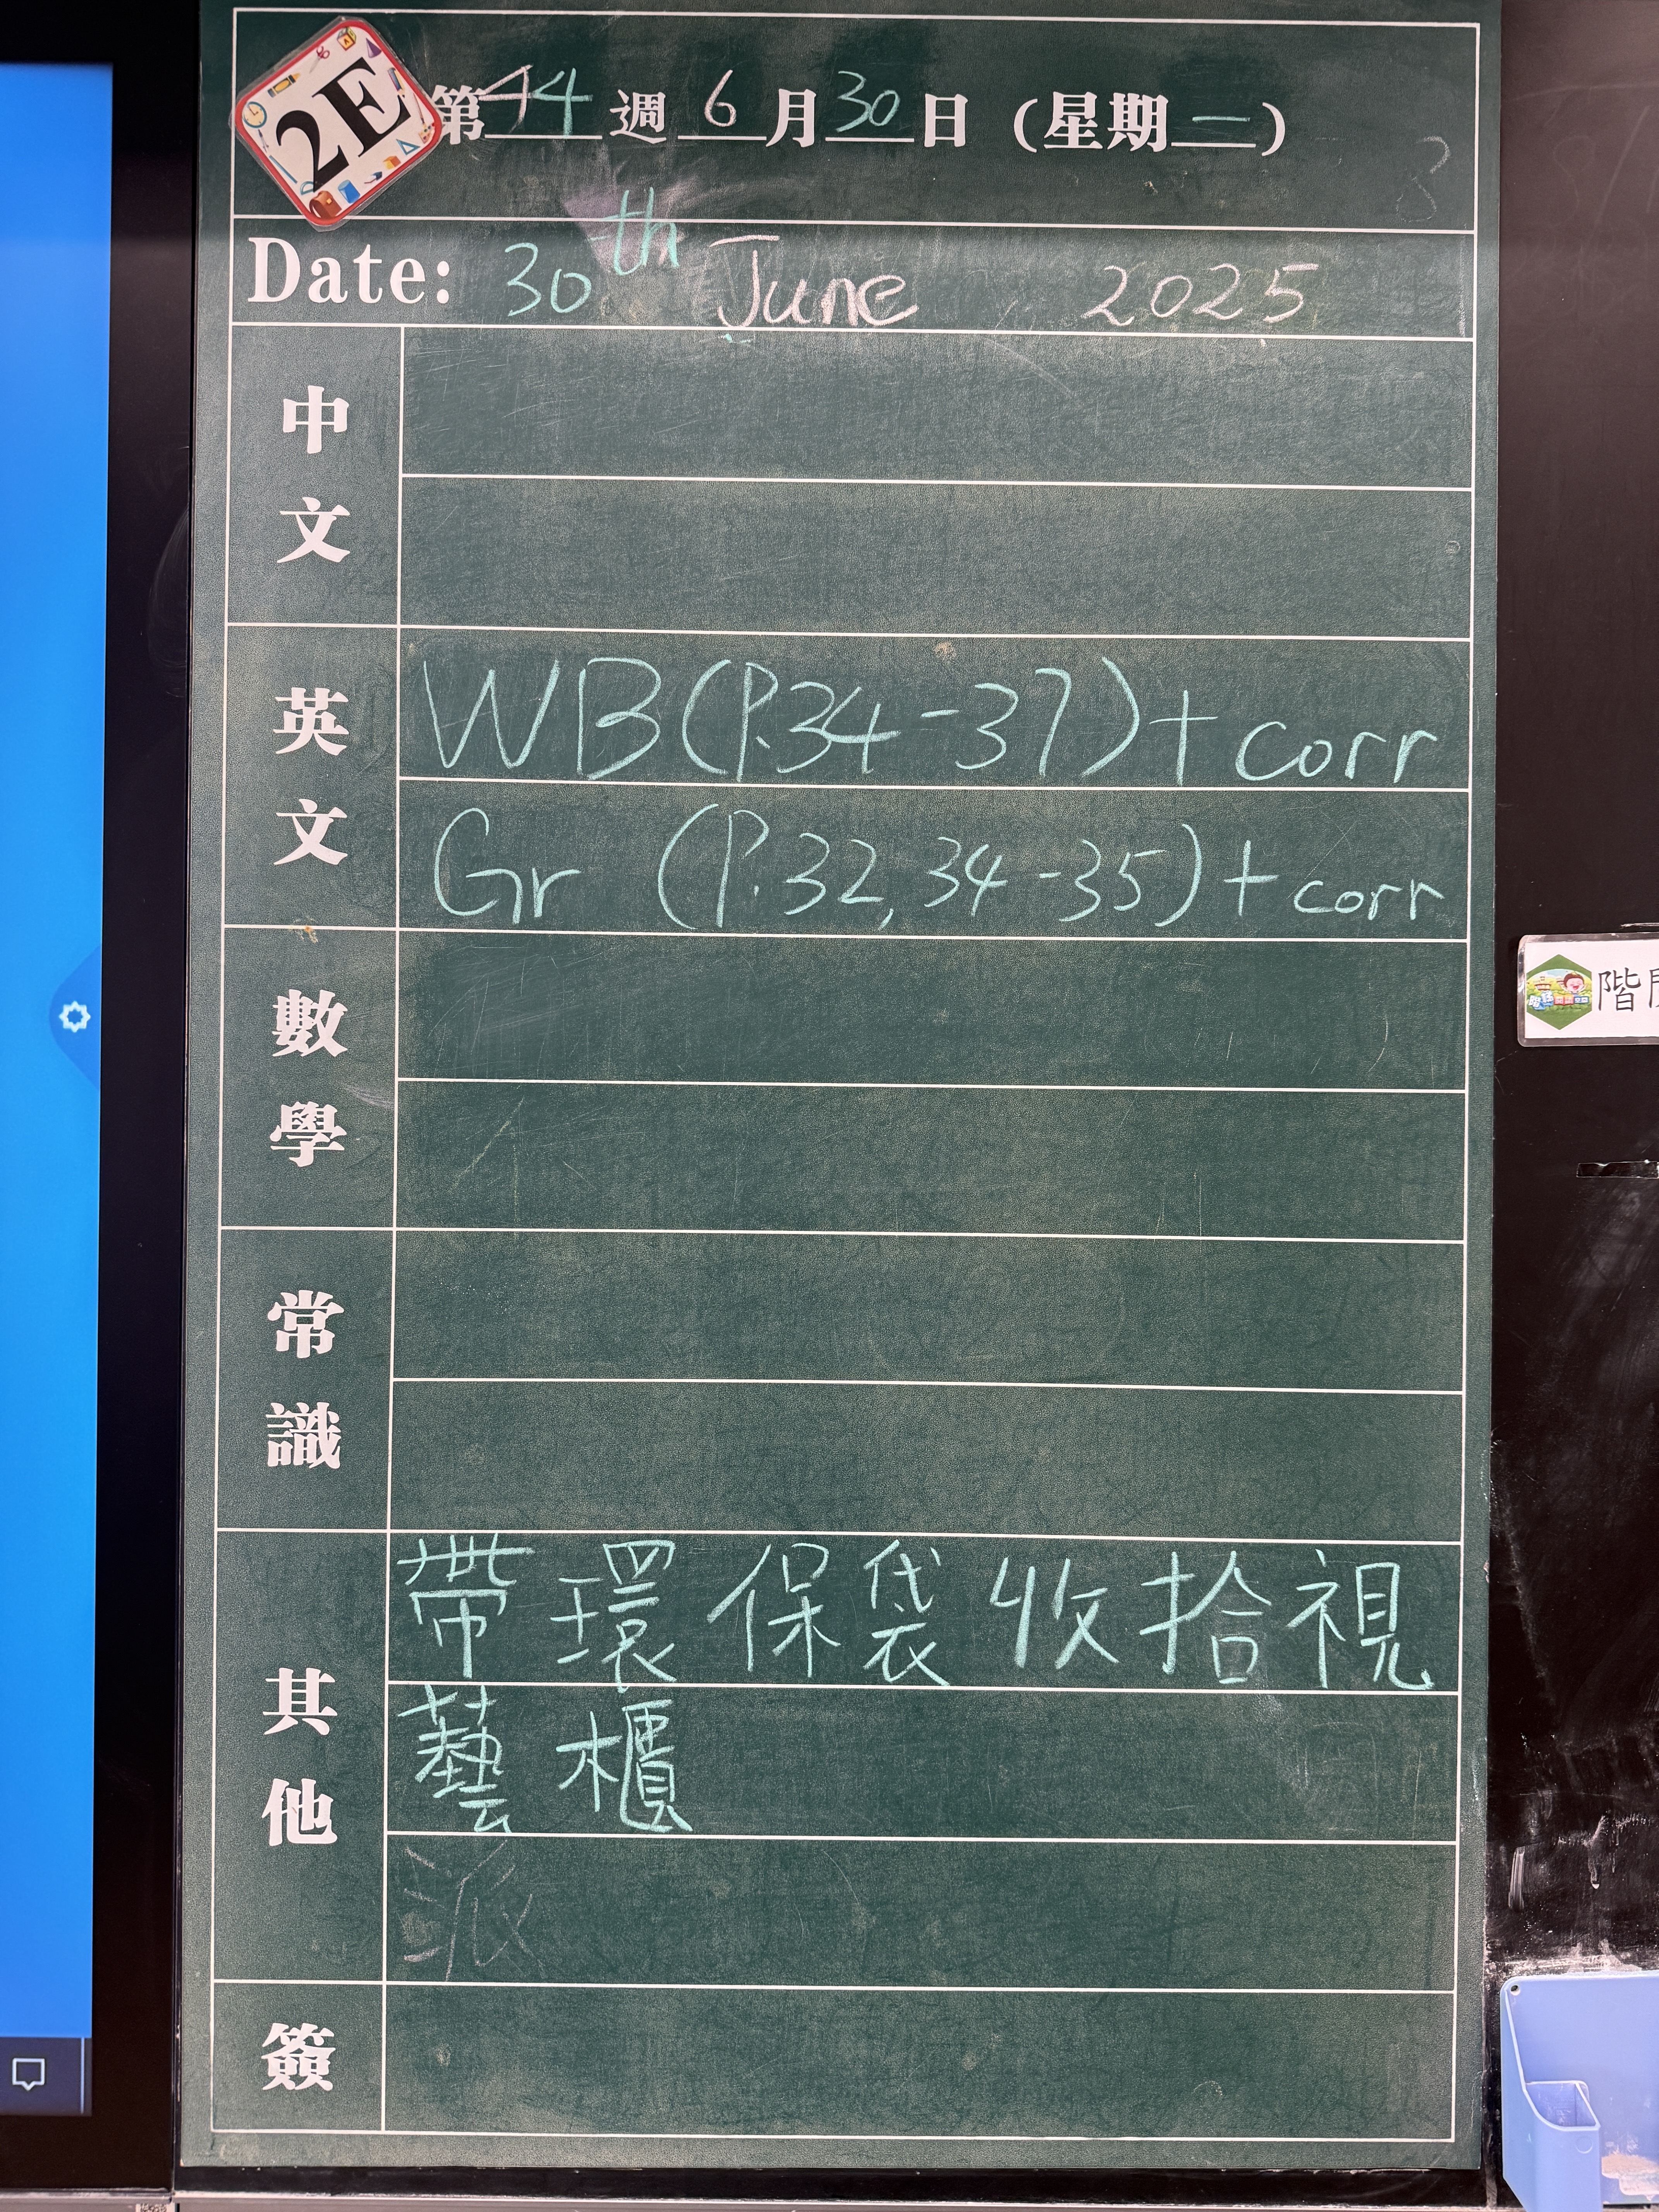 2E
第44週 6月30日 (星期一)
Date: 30th June 2025
中文
英文
WB (P.34-37) + corr
Gr (P.32, 34-35) + corr
數學
常識
其他
帶環保袋收拾視
藝櫃
派
簽
階